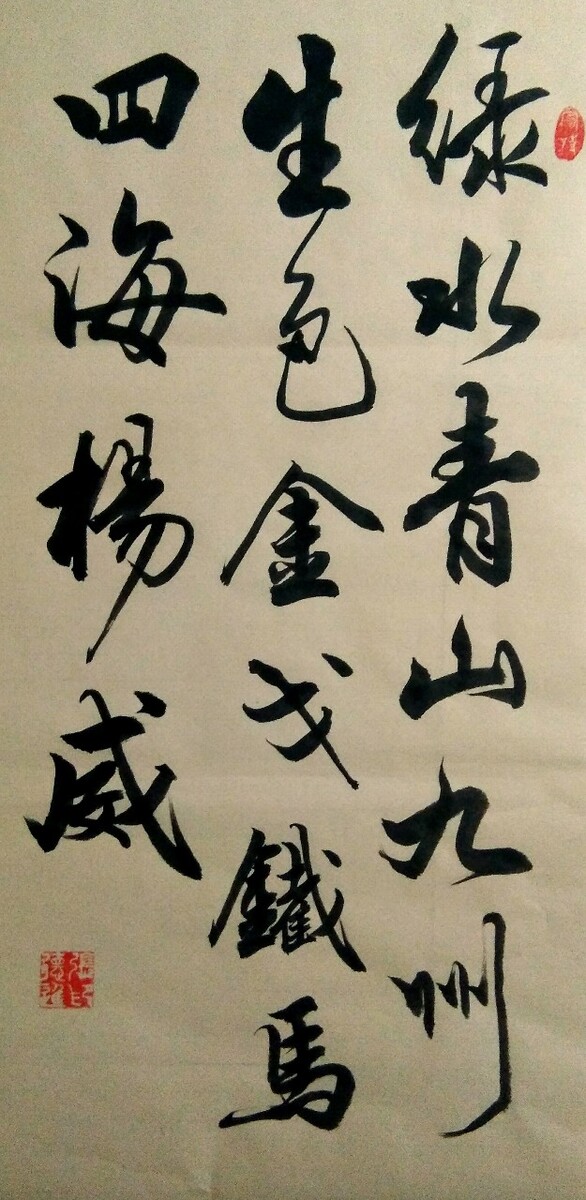 绿水青山九州
生色金戈鐵馬
四海楊威